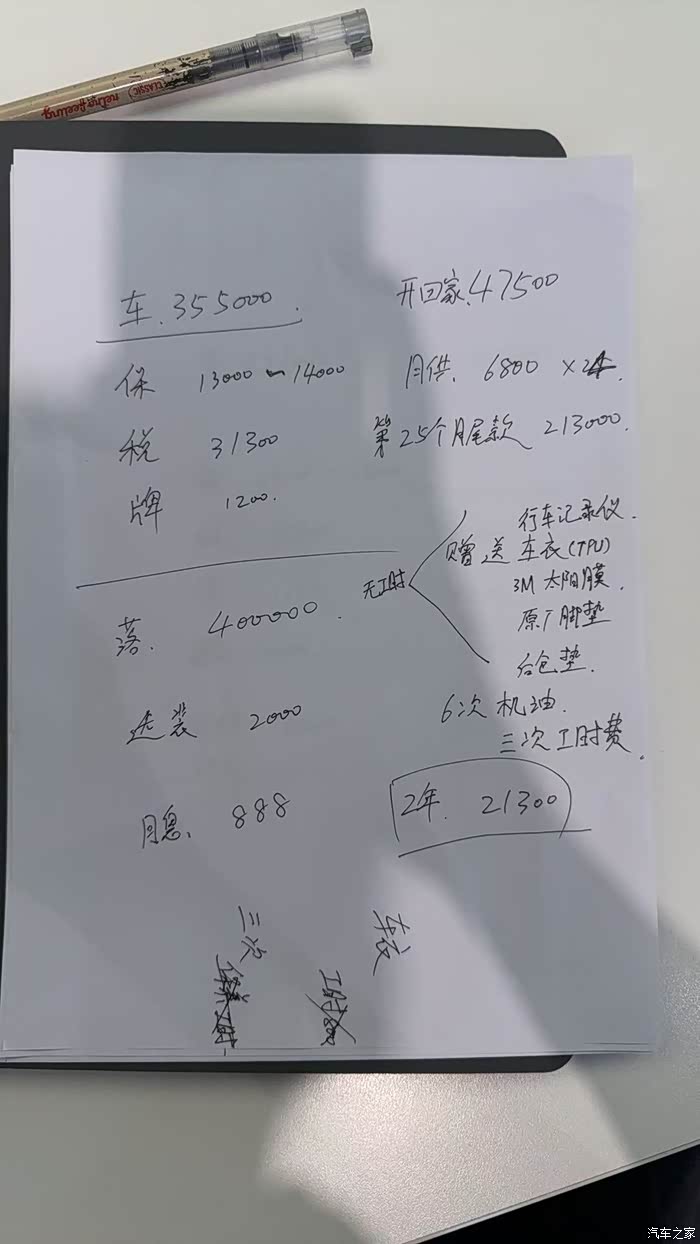 neby feeling (CLASSIC)
车. 355000.
开回家. 47500
保 13000~14000
月供. 6800 ×24.
税 31300
第25个月尾款 213000.
牌 1200.
赠送
行车记录仪.
车衣(TPU)
3M 太阳膜.
原厂脚垫
后仓垫.
无工时
落. 400000.
选装 2000
6次 机油.
三次工时费.
月息. 888
2年. 21300
三次
车衣
工时800
汽车之家